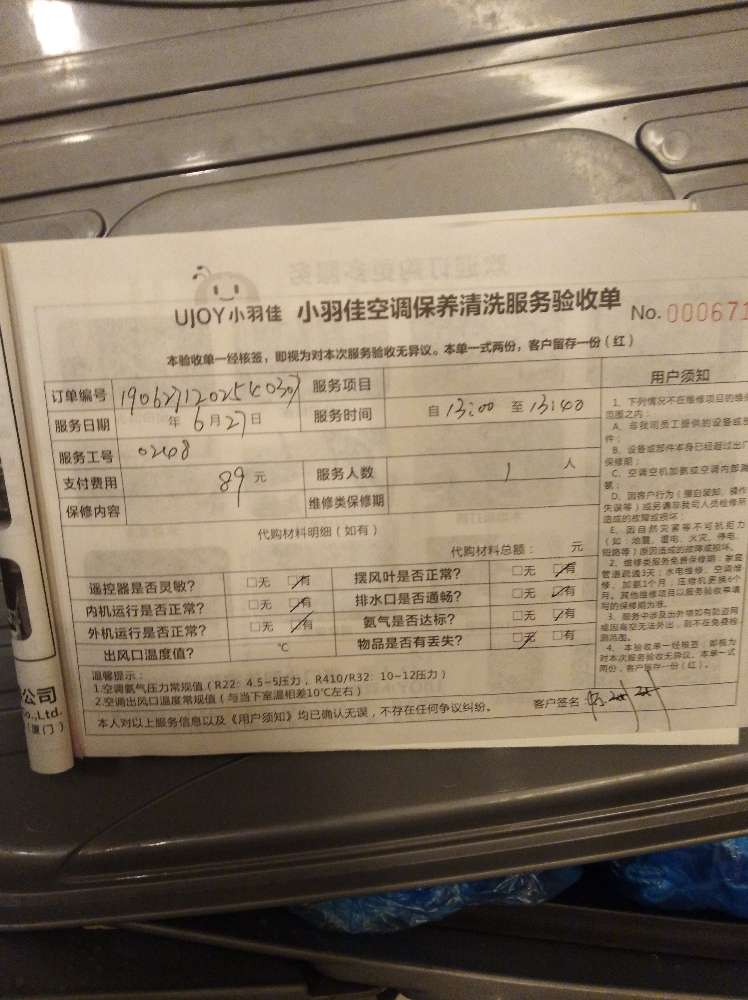 UJOY小羽佳 小羽佳空调保养清洗服务验收单 No. 000671
本验收单一经核签，即视为对本次服务验收无异议。本单一式两份，客户留存一份（红）
订单编号 服务项目
服务日期 年6月27日 服务时间 自13:00至13:40
服务工号 0248
支付费用 89元 服务人数 1人
保修内容 维修类保修期
代购材料明细（如有）
代购材料总额： 元
遥控器是否灵敏？ □无 □有 摆风叶是否正常？ □无 □有
内机运行是否正常？ □无 □有 排水口是否通畅？ □无 □有
外机运行是否正常？ □无 □有 氨气是否达标？ □无 □有
出风口温度值？ ℃ 物品是否有丢失？ □无 □有
温馨提示：
1.空调氨气压力常规值（R22：4.5~5压力，R410/R32：10~12压力）
2.空调出风口温度常规值（与当下室温相差10℃左右）
本人对以上服务信息以及《用户须知》均已确认无误，不存在任何争议纠纷。 客户签名：
用户须知
1、下列情况不在维修项目的维
范围之内：
A、非我司员工提供的设备或
件；
B、设备或部件本身已经超过出厂
保修期；
C、空调空机加氨或空调内部漏
氨；
D、因客户行为（擅自装卸、操作
失误等）或另请非我司人员检修所
造成的故障或损坏；
E、因自然灾害等不可抗拒力
（如：地震、雷电、火灾、停电、
短路等）原因造成的故障或损坏。
2、维修类服务免费保修期：家庭
管道疏通3天；水电维修、空调维
修、加氨1个月；压缩机更换6个
月。其他维修项目以服务验收单填
写的保修期为准。
3、服务中涉及出外墙如有防盗网
或因高空无法外出，则不在免费检
测范围。
4、本验收单一经核签，即视为
对本次服务验收无异议。本单一式
两份，客户留存一份（红）。
公司
o.,Ltd.
（厦门）